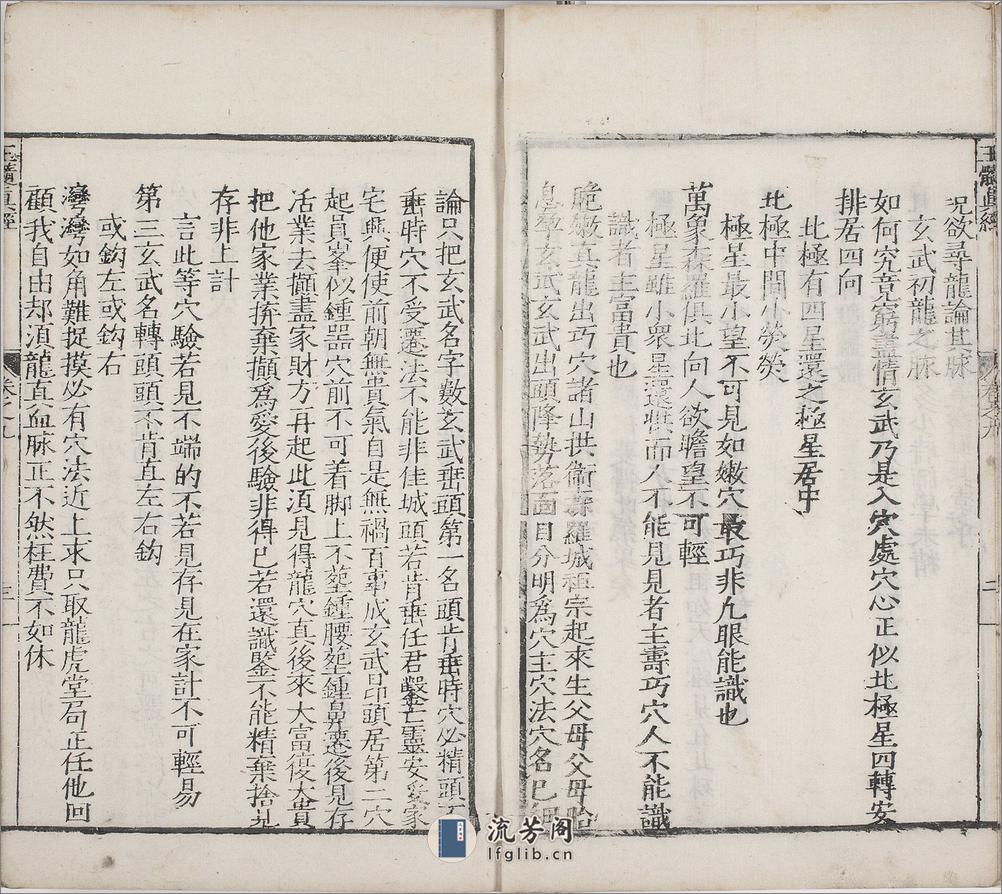 玉髓真經
況欲尋龍論其脉
玄武初龍之脉
如何究竟窮盡情玄武乃是入穴處穴心正似北極星四轉安
排居四向
北極有四星還之極星居中
北極中間小熒熒
極星最小望不可見如嫩穴最巧非凡眼能識也
萬象森羅俱北向人欲瞻皇不可輕
極星雖小衆星還拱而人不能見見者主壽巧穴人不能識
識者主富貴也
脆嫩真龍出巧穴諸山拱衛森羅城祖宗起來生父母父母胎
息孕玄武玄武出頭降勢落面目分明爲穴主穴法穴名已細
卷之九
二
論只把玄武名字數玄武垂頭第一名頭肯垂時穴必精頭不
垂時穴不受遷法不能非佳城頭若肯垂任君鑿亡靈安妥家
宅興便使前朝無貴氣自是無禍百事成玄武昂頭居第二穴
起員峯似鍾噐穴前不可着脚上不塟鍾腰塟鍾鼻遷後見存
活業去擷盡家財方再起此須見得龍穴真後來大富後大貴
把他家業拚棄擷爲愛後驗非得已若還識鑒不能精棄捨見
存非上計
言此等穴驗若見不端的不若見存見在家計不可輕易
第三玄武名轉頭頭不肯直左右鈎
或鈎左或鈎右
灣灣如角難捉摸必有穴法近上求只取龍虎堂局正任他回
顧我自由却須龍直血脉正不然枉費不如休
玉髓真經
卷之九
三
流芳阁
lfglib.cn